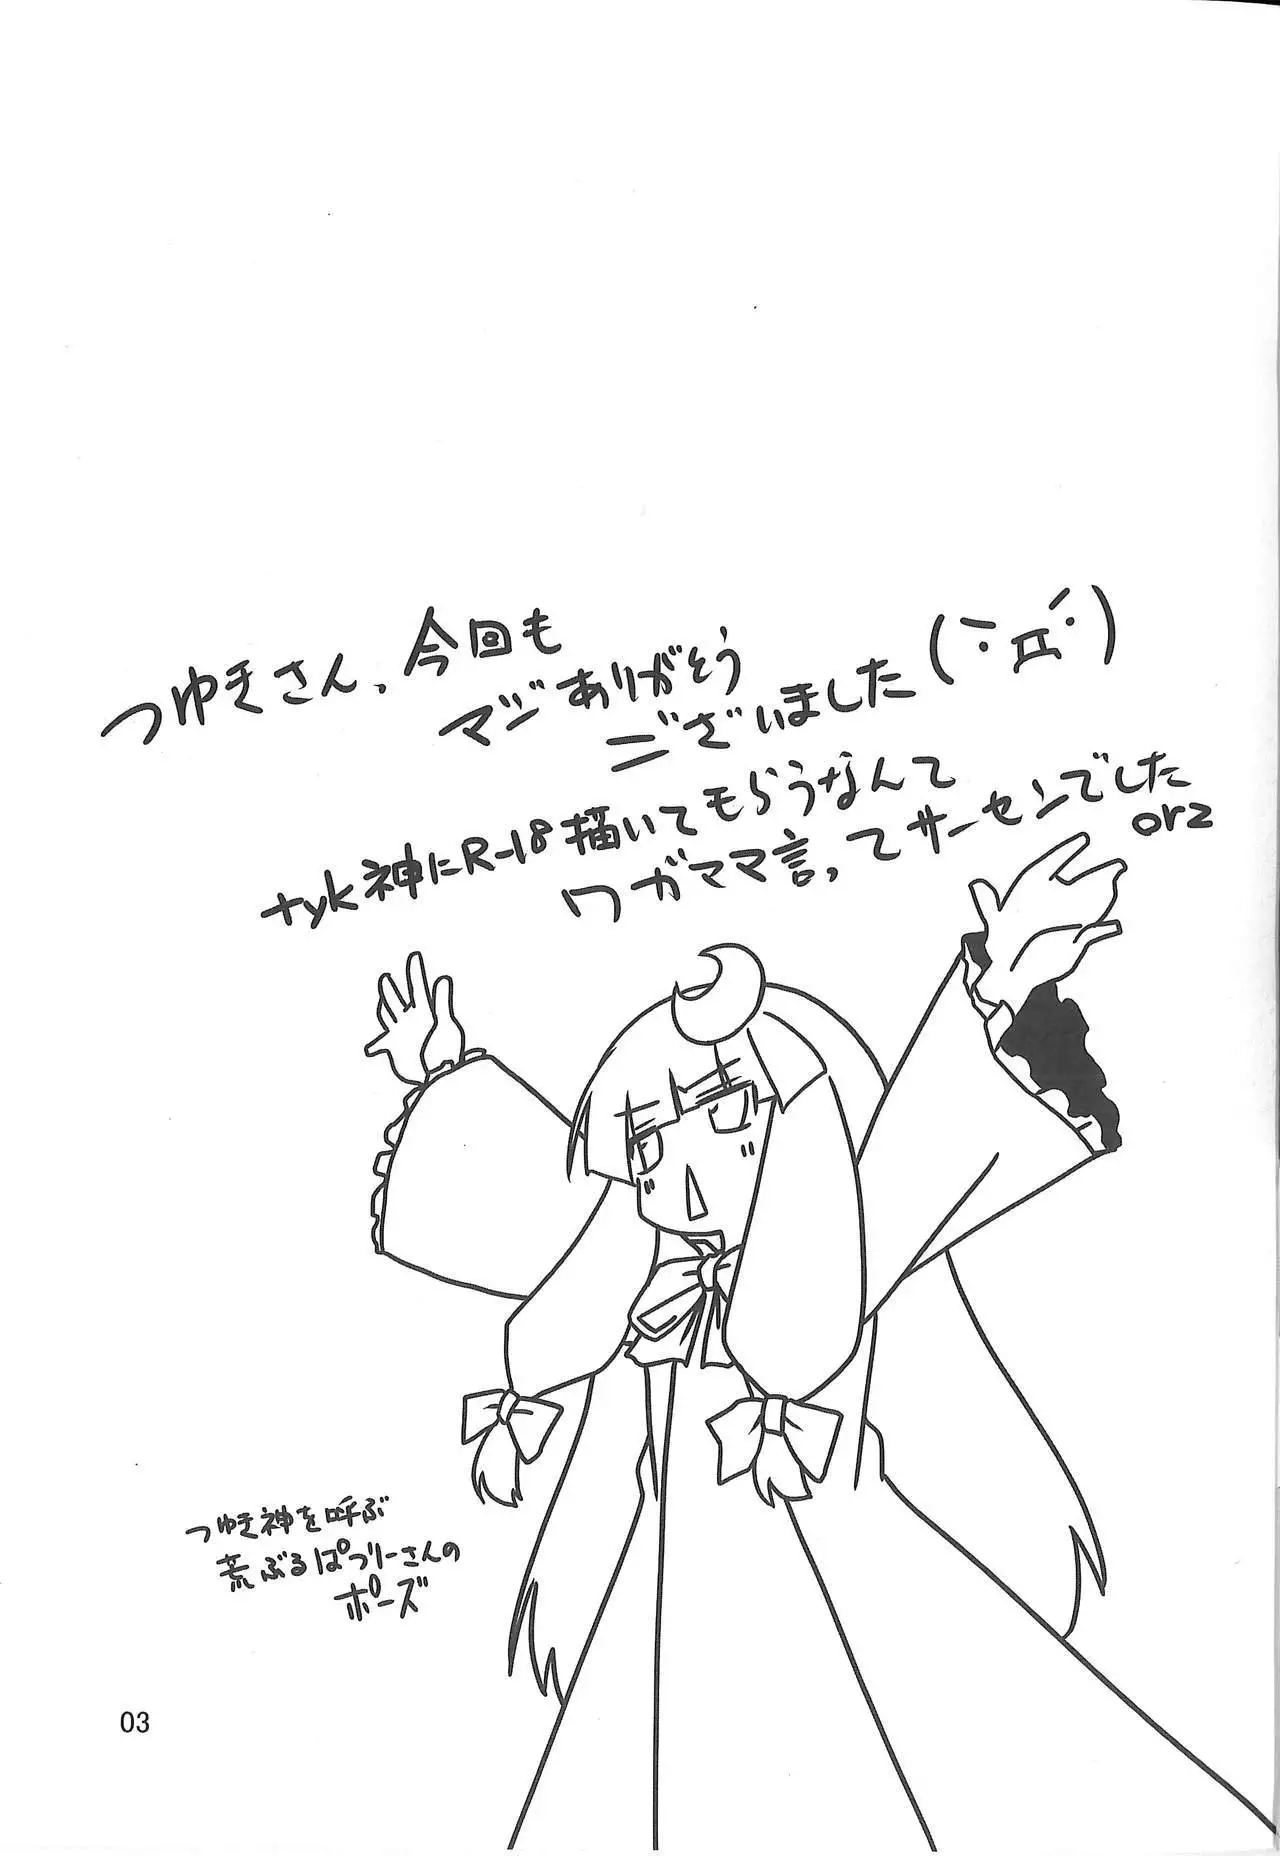 つゆきさん、今回も
マジありがそう
ございました(˙-дﾟ́)
tyk神にR-18描いてもらうなんて
ワガママ言ってサーセンでした
orz
つゆき神を呼ぶ
荒ぶるぱつりーさんの
ポーズ
03